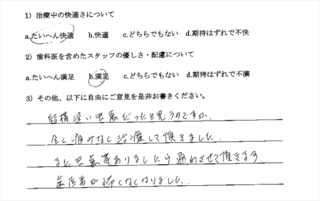 1）治療中の快適さについて
a.たいへん快適　b.快適　c.どちらでもない　d.期待はずれで不快
2）歯科医を含めたスタッフの優しさ・配慮について
a.たいへん満足　b.満足　c.どちらでもない　d.期待はずれで不満
3）その他、以下に自由にご意見を是非お書きください。
結構深い虫歯だったと思うのですが、
全く痛みなく治療して頂きました。
また虫歯等ありましたら通わせて頂きます。
歯医者が怖くなくなりました。